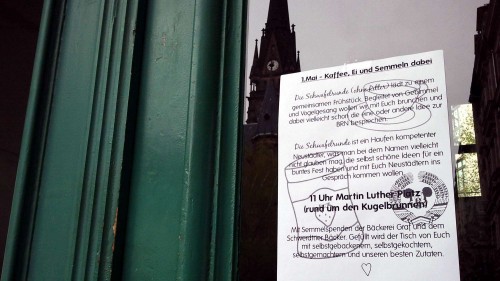 1.Mai - Kaffee, Ei und Semmeln dabei
Die Schwafelrunde (ohne Ritter) lädt zu einem
gemeinsamen Frühstück. Begleitet von Gebimmel
und Vogelgesang wollen wir mit Euch brunchen und
dabei vielleicht schon die eine oder andere Idee zur
BRN besprechen.
Die Schwafelrunde ist ein Haufen kompetenter
Neustädter, was man bei dem Namen vielleicht
nicht glauben mag, die selbst schöne Ideen für ein
buntes Fest haben und mit Euch Neustädtern ins
Gespräch kommen wollen.
11 Uhr Martin Luther Platz
(rund um den Kugelbrunnen)
Mit Semmelspenden der Bäckerei Graf und dem
Schwerdtner Bäcker. Gefüllt wird der Tisch von Euch
mit selbstgebackenem, selbstgekochtem,
selbstgemachtem und unseren besten Zutaten.